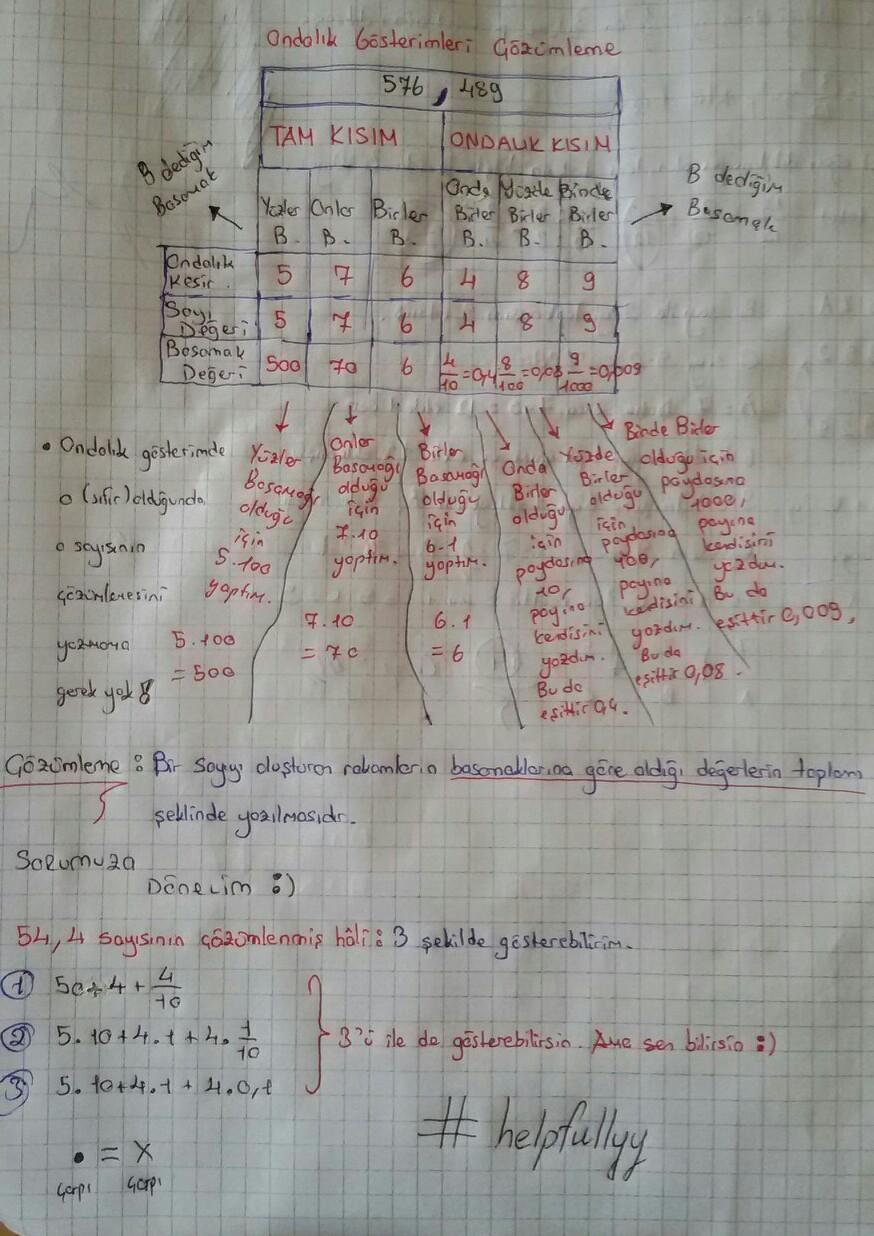 Ondalık Gösterimleri Çözümleme
576, 489
TAM KISIM ONDALIK KISIM
B dediğim
Basamak
B dediğim
Basamak
Yüzler B. Onlar B. Birler B. Onda Birler B. Yüzde Birler B. Binde Birler B.
Ondalık Kesir 5 7 6 4 8 9
Sayı Değeri 5 7 6 4 8 9
Basamak Değeri 500 70 6 4/10=0,4 8/100=0,08 9/1000=0,009
• Ondalık gösterimde
0 (sıfır) olduğunda
0 sayısının
çözümlemesini
yazmama
gerek yok
Yüzler
Basamağı
olduğu
için
5.100
yaptım.
5.100
= 500
Onlar
Basamağı
olduğu
için
7.10
yaptım.
7.10
= 70
Birler
Basamağı
olduğu
için
6.1
yaptım.
6.1
= 6
Onda
Birler
olduğu
için
paydasına
10,
payına
kendisini
yazdım.
Bu da
eşittir 0,4.
Yüzde
Birler
olduğu
için
paydasına
100,
payına
kendisini
yazdım.
Bu da
eşittir 0,08.
Binde Birler
olduğu için
paydasına
1000,
payına
kendisini
yazdım.
Bu da
eşittir 0,009.
Çözümleme : Bir sayıyı oluşturan rakamların basamaklarına göre aldığı değerlerin toplam
şeklinde yazılmasıdır.
Sorumuza
Dönelim :)
54,4 sayısının çözümlenmiş hâli : 3 şekilde gösterebilirim.
① 50+4+4/10
② 5.10+4.1+4.1/10
③ 5.10+4.1+4.0,1
3'ü ile de gösterebilirsin. Ama sen bilirsin :)
• = X
çarpı çarpı
# helpfullyy